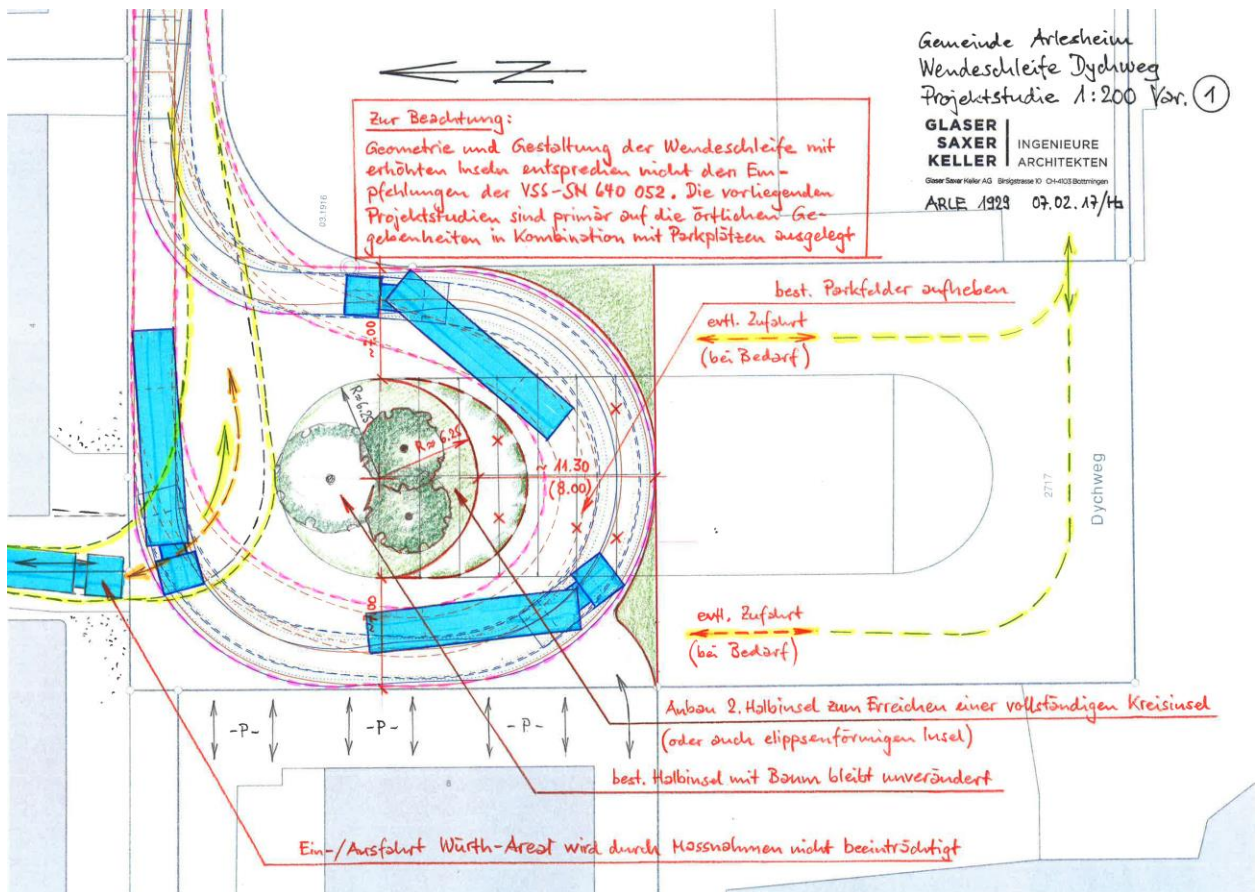 Gemeinde Arlesheim
Wendeschleife Dychweg
Projektstudie 1:200 Var. 1
GLASER
SAXER
KELLER
INGENIEURE
ARCHITEKTEN
Glaser Saxer Keller AG Birsigstrasse 10 CH-4103 Bottmingen
ARLE 1929 07.02.17/Hs
N
Zur Beachtung:
Geometrie und Gestaltung der Wendeschleife mit
erhöhten Inseln entsprechen nicht den Em-
pfehlungen der VSS-SN 640 052. Die vorliegenden
Projektstudien sind primär auf die örtlichen Ge-
gebenheiten in Kombination mit Parkplätzen ausgelegt
03.1916
4
best. Parkfelder aufheben
evtl. Zufahrt
(bei Bedarf)
~7.00
R=6.25
R=6.25
~11.30
(8.00)
2717
Dychweg
~7.00
evtl. Zufahrt
(bei Bedarf)
Anbau 2. Halbinsel zum Erreichen einer vollständigen Kreisinsel
(oder auch elippsenförmigen Insel)
-P-
-P-
-P-
best. Halbinsel mit Baum bleibt unverändert
6
Ein-/Ausfahrt Würth-Areal wird durch Massnahmen nicht beeinträchtigt